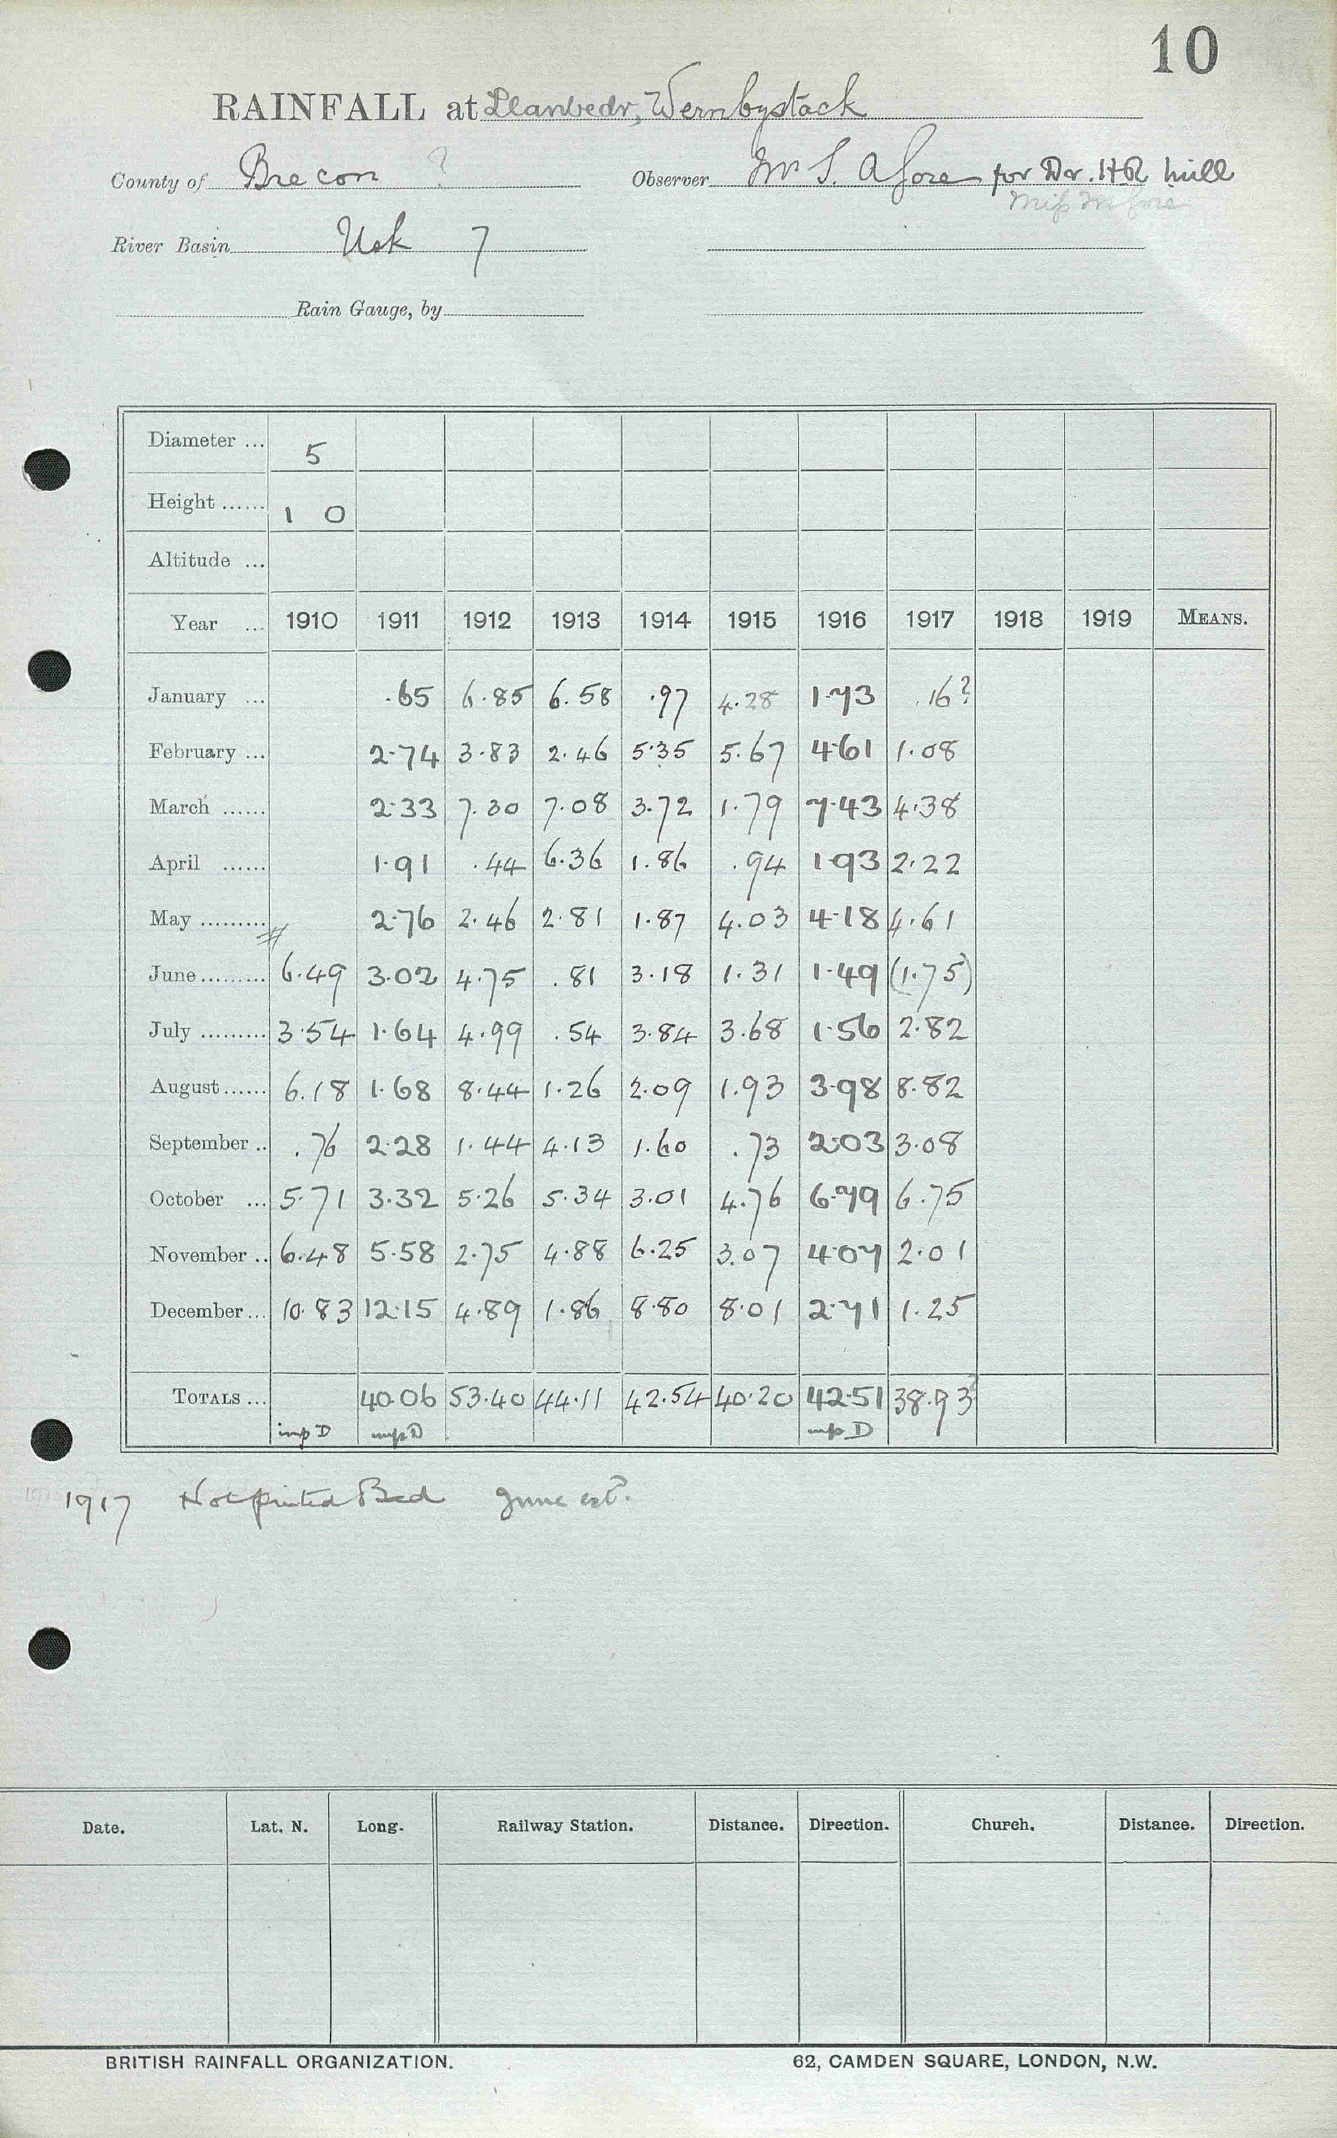 10
RAINFALL at Llanbedr, Wernbystack
County of Brecon ? Observer Mr S. A Gore for Dr. HR Mill
Miss M Gore
River Basin Usk 7
Rain Gauge, by
Diameter ... 5
Height ...... 1 0
Altitude ...
Year ... 1910 1911 1912 1913 1914 1915 1916 1917 1918 1919 MEANS.
January ... .65 6.85 6.58 .97 4.28 1.73 .16?
February ... 2.74 3.83 2.46 5.35 5.67 4.61 1.08
March ...... 2.33 7.30 7.08 3.72 1.79 7.43 4.38
April ...... 1.91 .44 6.36 1.86 .94 1.93 2.22
May ......... 2.76 2.46 2.81 1.87 4.03 4.18 4.61
June ......... 6.49 3.02 4.75 .81 3.18 1.31 1.49 (1.75)
July ......... 3.54 1.64 4.99 .54 3.84 3.68 1.56 2.82
August ...... 6.18 1.68 8.44 1.26 2.09 1.93 3.98 8.82
September .. .76 2.28 1.44 4.13 1.60 .73 2.03 3.08
October ... 5.71 3.32 5.26 5.34 3.01 4.76 6.79 6.75
November .. 6.48 5.58 2.75 4.88 6.25 3.07 4.07 2.01
December ... 10.83 12.15 4.89 1.86 8.80 8.01 2.71 1.25
TOTALS ... 40.06 53.40 44.11 42.54 40.20 42.51 38.93
imp D imp D imp D
1917 Not printed Bad June est.
Date. Lat. N. Long. Railway Station. Distance. Direction. Church. Distance. Direction.
BRITISH RAINFALL ORGANIZATION. 62, CAMDEN SQUARE, LONDON, N.W.